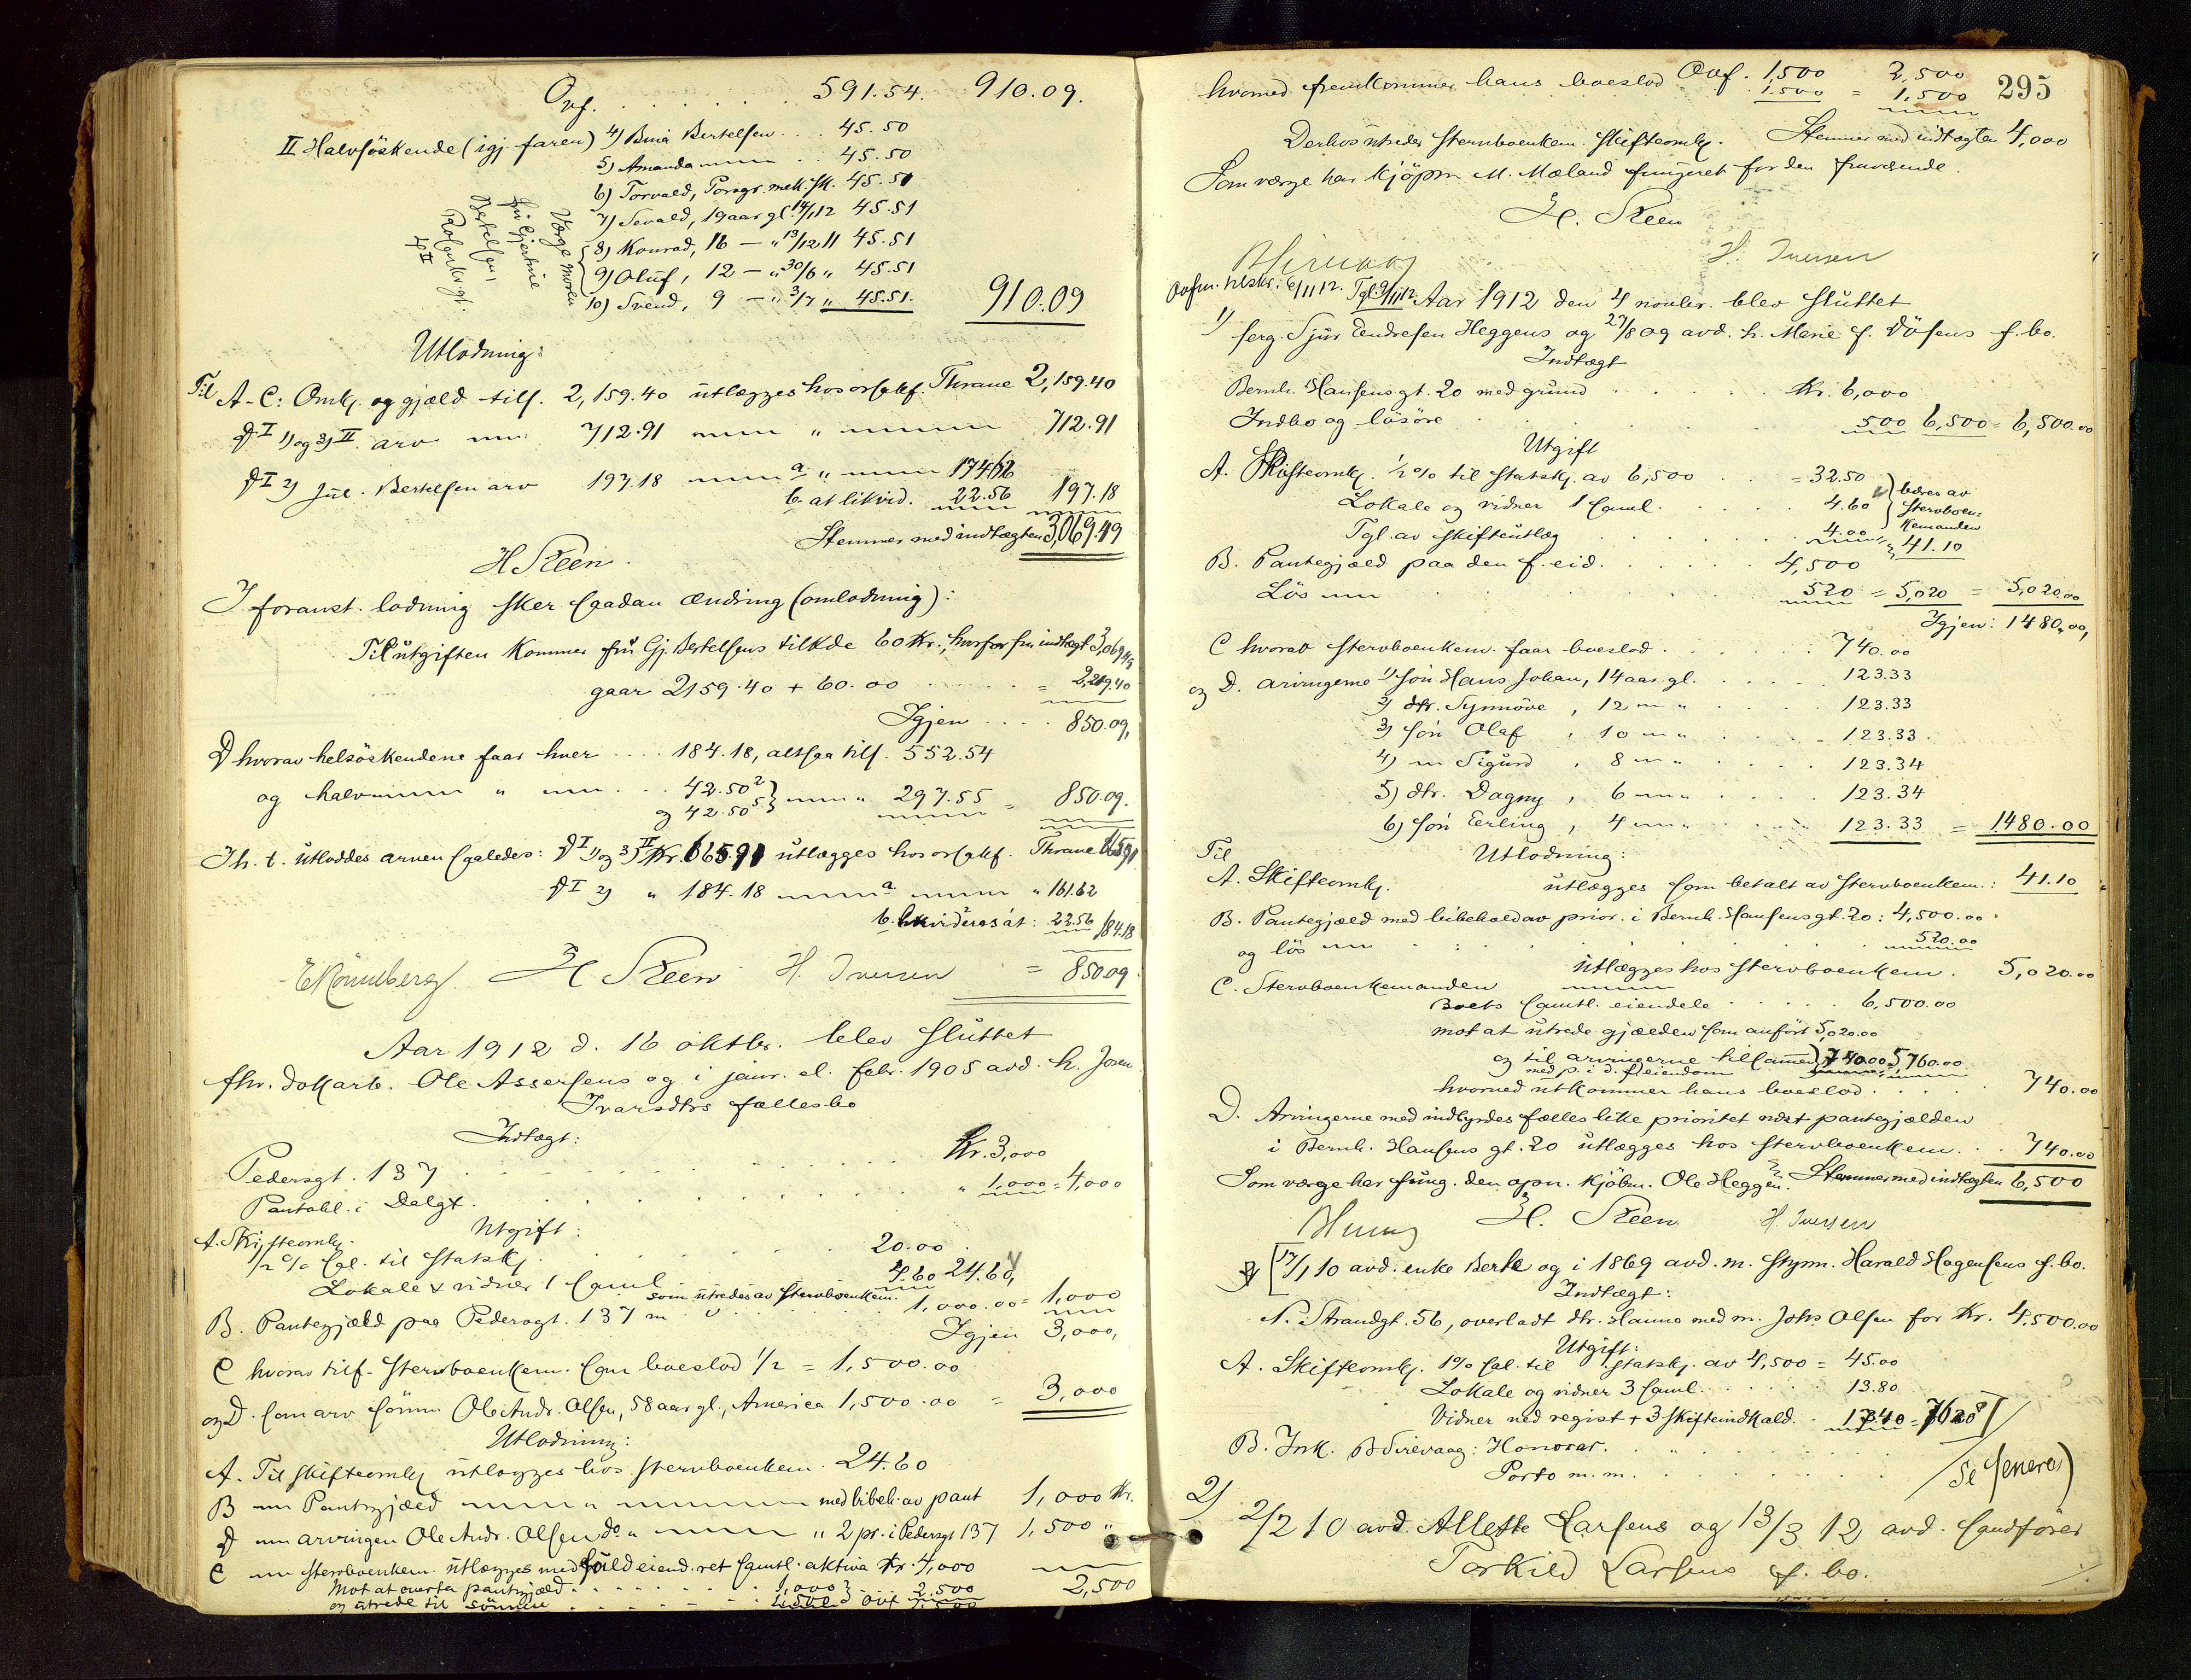 Ovf. . . . . . . . 591.54. 910.09.
II Halvsöskende (igj. faren) 4) Bina Bertelsen . . . 45.50
5) Amanda . . . 45.50
6) Torvald, Porsgr. mek. sk. 45.51
7) Sevald, 19 aar gl. 14/1 12 45.51
8) Konrad, 16 — " 13/12 11 45.51
9) Oluf, 12 — " 30/6 " 45.51
10) Svend, 9 — " 3/7 " 45.51. 910.09
Værge moren
fru Gjertine
Bertelsen,
Utlodning:
Til A-C: Omk. og gjæld tils. 2,159.40 utlægges hos orsakf. Thrane 2,159.40
D I 1) og 3) II arv 712.91 " 712.91
D I 2) Jul. Bertelsen arv 197.18 a. " 174.62
b. at likvid. 22.56 197.18
Stemmer med indtægten 3,069.49
H Steen.
I foranst. lodning sker saadan ændring (omlodning):
Til utgiften kommer fru Gj. Bertelsens tilkde 60 Kr., hvorfor fra indtægt 3,069.49
gaar 2159.40 + 60.00 . . . . . = 2,219.40
Igjen . . . . 850.09,
D hvorav helsöskendene faar hver . . . . 184.18, altsaa tils. 552.54
og halv " . . . 42.50 2
og 42.50 5 } " 297.55 = 850.09.
Ih. t. utloddes arven saaledes: D I 1) og 3) II Kr. 665.91 utlægges hos orsakf. Thrane 665.91
D I 2) " 184.18 a " 161.62
b. likvideres at: 22.56 184.18
E Rönneberg. H Steen H. Iversen = 850.09
Aar 1912 d. 16 oktbr. blev sluttet
fhv. dokarb. Ole Assersens og i janr. el. febr. 1905 avd. h. Joren
Ivarsdtrs fællesbo
Indtægt:
Pedersgt. 137 . . . . . . . Kr. 3,000
Pantobl. i Dalgt. . . . . . . " 1,000 = 4,000
Utgift:
A. Skifteomk.
1/2 % sal. til statsk. . . . . . . 20.00
Lokale & vidner 1 saml. 4.60 24.60,
som utredes av stervboenkem.
B. Pantegjæld paa Pedersgt. 137 . . . . 1,000.00 = 1,000
Igjen 3,000,
C hvorav tilf. stervboenkem. som boeslod 1/2 = 1,500.00
og D. som arv sönnen Ole Andr. Olsen, 58 aar gl., America 1,500.00 = 3,000
Utlodning:
A. Til skifteomk. utlægges hos stervboenkem. 24.60
B Pantegjæld " med bibeh. av pant 1,000 Kr.
D arvingen Ole Andr. Olsen do " " 2 pr. i Pedersgt 137 1,500 "
C stervboenkem. utlægges med fuld eiend. ret samtl. aktiva Kr. 4,000
Mot at overta pantegjæld . . . . . . 1,000
og utrede til sönnen . . . . . . 1,500 } . . ovf 2,500 2,500
295
Ovf. 1,500 2,500
hvormed fremkommer hans boeslod 1,500 = 1,500
Derhos utreder stervboenkem. skifteomk. Stemmer med indtægten 4,000
Som værge har kjöpm M. Mæland fungeret for den fraværende.
H. Steen
H. Iversen
Avsn. tilskr. 6/11 12. Tgl. 9/11 12. Aar 1912 den 4 novbr. blev sluttet
1) serg. Sjur Endresen Heggens og 27/8 09 avd. h. Marie f. Vösens f. bo.
Indtægt
Bernh. Hansens gt. 20 med grund . . . . . Kr. 6,000
Indbo og lösöre . . . . . . 500 6,500 = 6,500.00
Utgift
A. Skifteomk. 1/2 % til statsk. av 6,500 . . . = 32.50
Lokale og vidner 1 saml. . . . . . 4.60
Tgl. av skifteutlæg . . . . . 4.00 = 41.10
bæres av
stervboen-
kemanden
B. Pantegjæld paa den f. eid. . . . . . . 4,500
Lös . . . . . . 520 = 5,020 = 5,020.00
Igjen: 1480.00,
C hvorav stervboenkem. faar boeslod . . . . . . 740.00
og D. arvingerne 1) sön Hans Johan, 14 aar gl. . . . . . 123.33
2) dtr. Synnöve, 12 " . . . . 123.33
3) sön Olaf, 10 " . . . . 123.33.
4) Sigurd, 8 " . . . . 123.34
5) dtr. Dagny, 6 " . . . . 123.34
6) sön Erling, 4 " . . . . 123.33 = 1480.00
Til
Utlodning:
A. Skifteomk. utlægges som betalt av stervboenkem.: 41.10
B. Pantegjæld med bibehold av prior. i Bernh. Hansens gt. 20: 4,500.00
og lös . . . . . . 520.00
utlægges hos stervboenkem. 5,020.00
C. Stervboenkemanden
Boets samtl. eiendele . . . . . 6,500.00
mot at utrede gjælden som anfört 5,020.00
og til arvingerne tilsammen 740.00 5,760.00
med p. i d. f. eiendom
hvormed utkommer hans boeslod . . . . . 740.00
D. Arvingerne med indbyrdes fælles like prioritet næst pantegjælden
i Bernh. Hansens gt. 20 utlægges hos stervboenkem. . . 740.00
Som værge har fung. den opn. kjöbm. Ole Heggen. Stemmer med indtægten 6,500
H. Steen H. Iversen
2) [17/1 10 avd. enke Berte og i 1869 avd. m. stymm. Harald Hagensens f. bo.
Indtægt:
N. Strandgt. 56, overladt dtr. Hanna med m. Johs Olsen for Kr. 4,500.00
Utgift:
A. Skifteomk. 1% sal. til statsk. av 4,500 = 45.00
Lokale og vidner 3 saml. . . . . . 13.80
Vidner ved regist + 3 skifteindkald. . 17.40 = 76.20
B. Ink. B Sirevaag: Honorar. . . . . .
Porto m. m. . . . . . .
Se senere)
2) 2/2 10 avd. Allette Larsens og 13/3 12 avd. sandförer
Torkild Larsens f. bo.